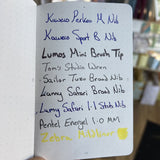 Kaweco Perkeo M Nib
Kaweco Sport B Nib
Lumos Mini Brush Tip
Tom's Studio Wren
Sailor Tuzu Broad Nib
Lamy Safari Broad Nib
Lamy Safari 1.1 Stub Nib
Pentel Energel 1.0 MM
Zebra Mildliner